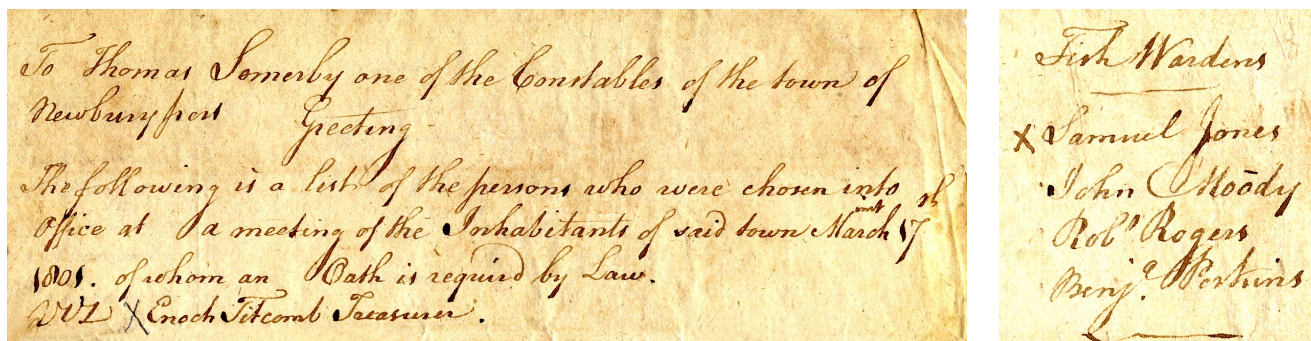 To Thomas Somerby one of the Constables of the town of
Newburyport Greeting
The following is a list of the persons who were chosen into
Office at a meeting of the Inhabitants of said town March inst 17th
1801. of whom an Oath is required by Law.
X Enoch Titcomb Treasurer.
Fish Wardens
X Samuel Jones
John Moody
Robt Rogers
Benja. Perkins